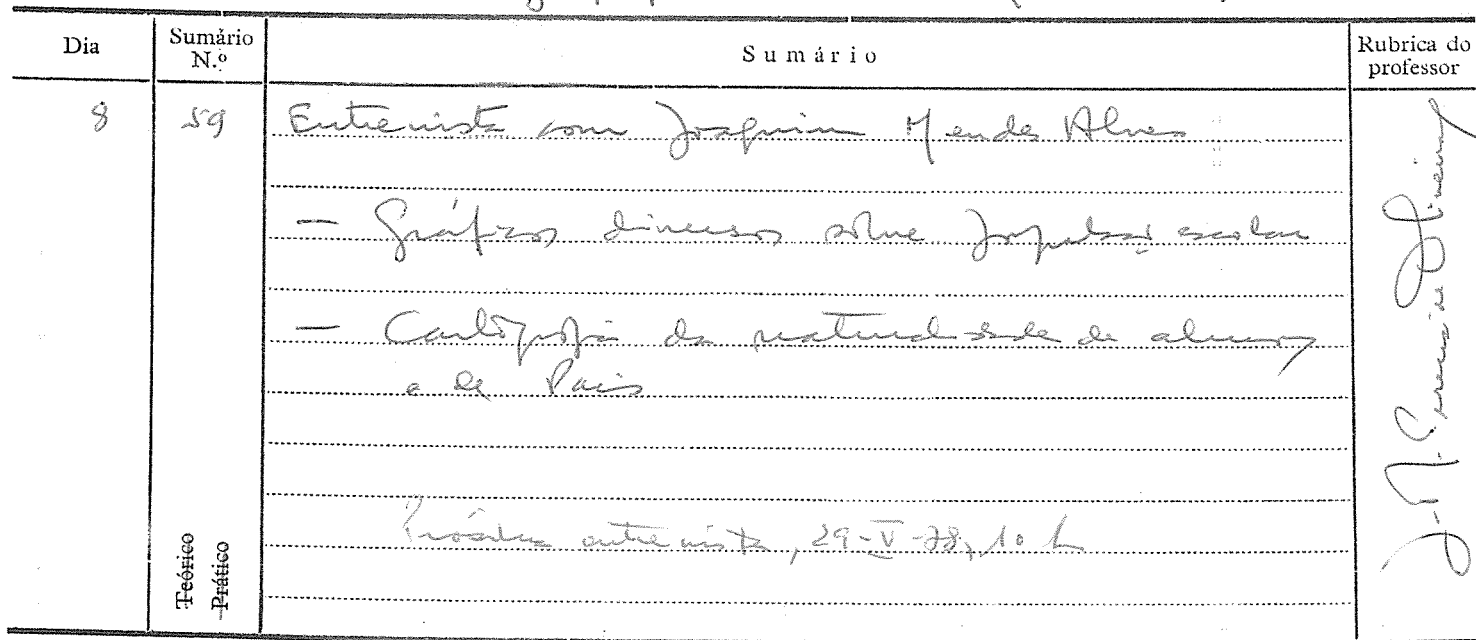 Dia
Sumário
N.º
Sumário
Rubrica do
professor
8
59
Entrevista com Joaquim Mendes Alves
— Gráficos diversos sobre população escolar
— Cartografia da naturalidade de alunos
e de Pais
Próxima entrevista, 29-V-78, 10 h
Teórico
Prático
J. M. Pereira de Oliveira